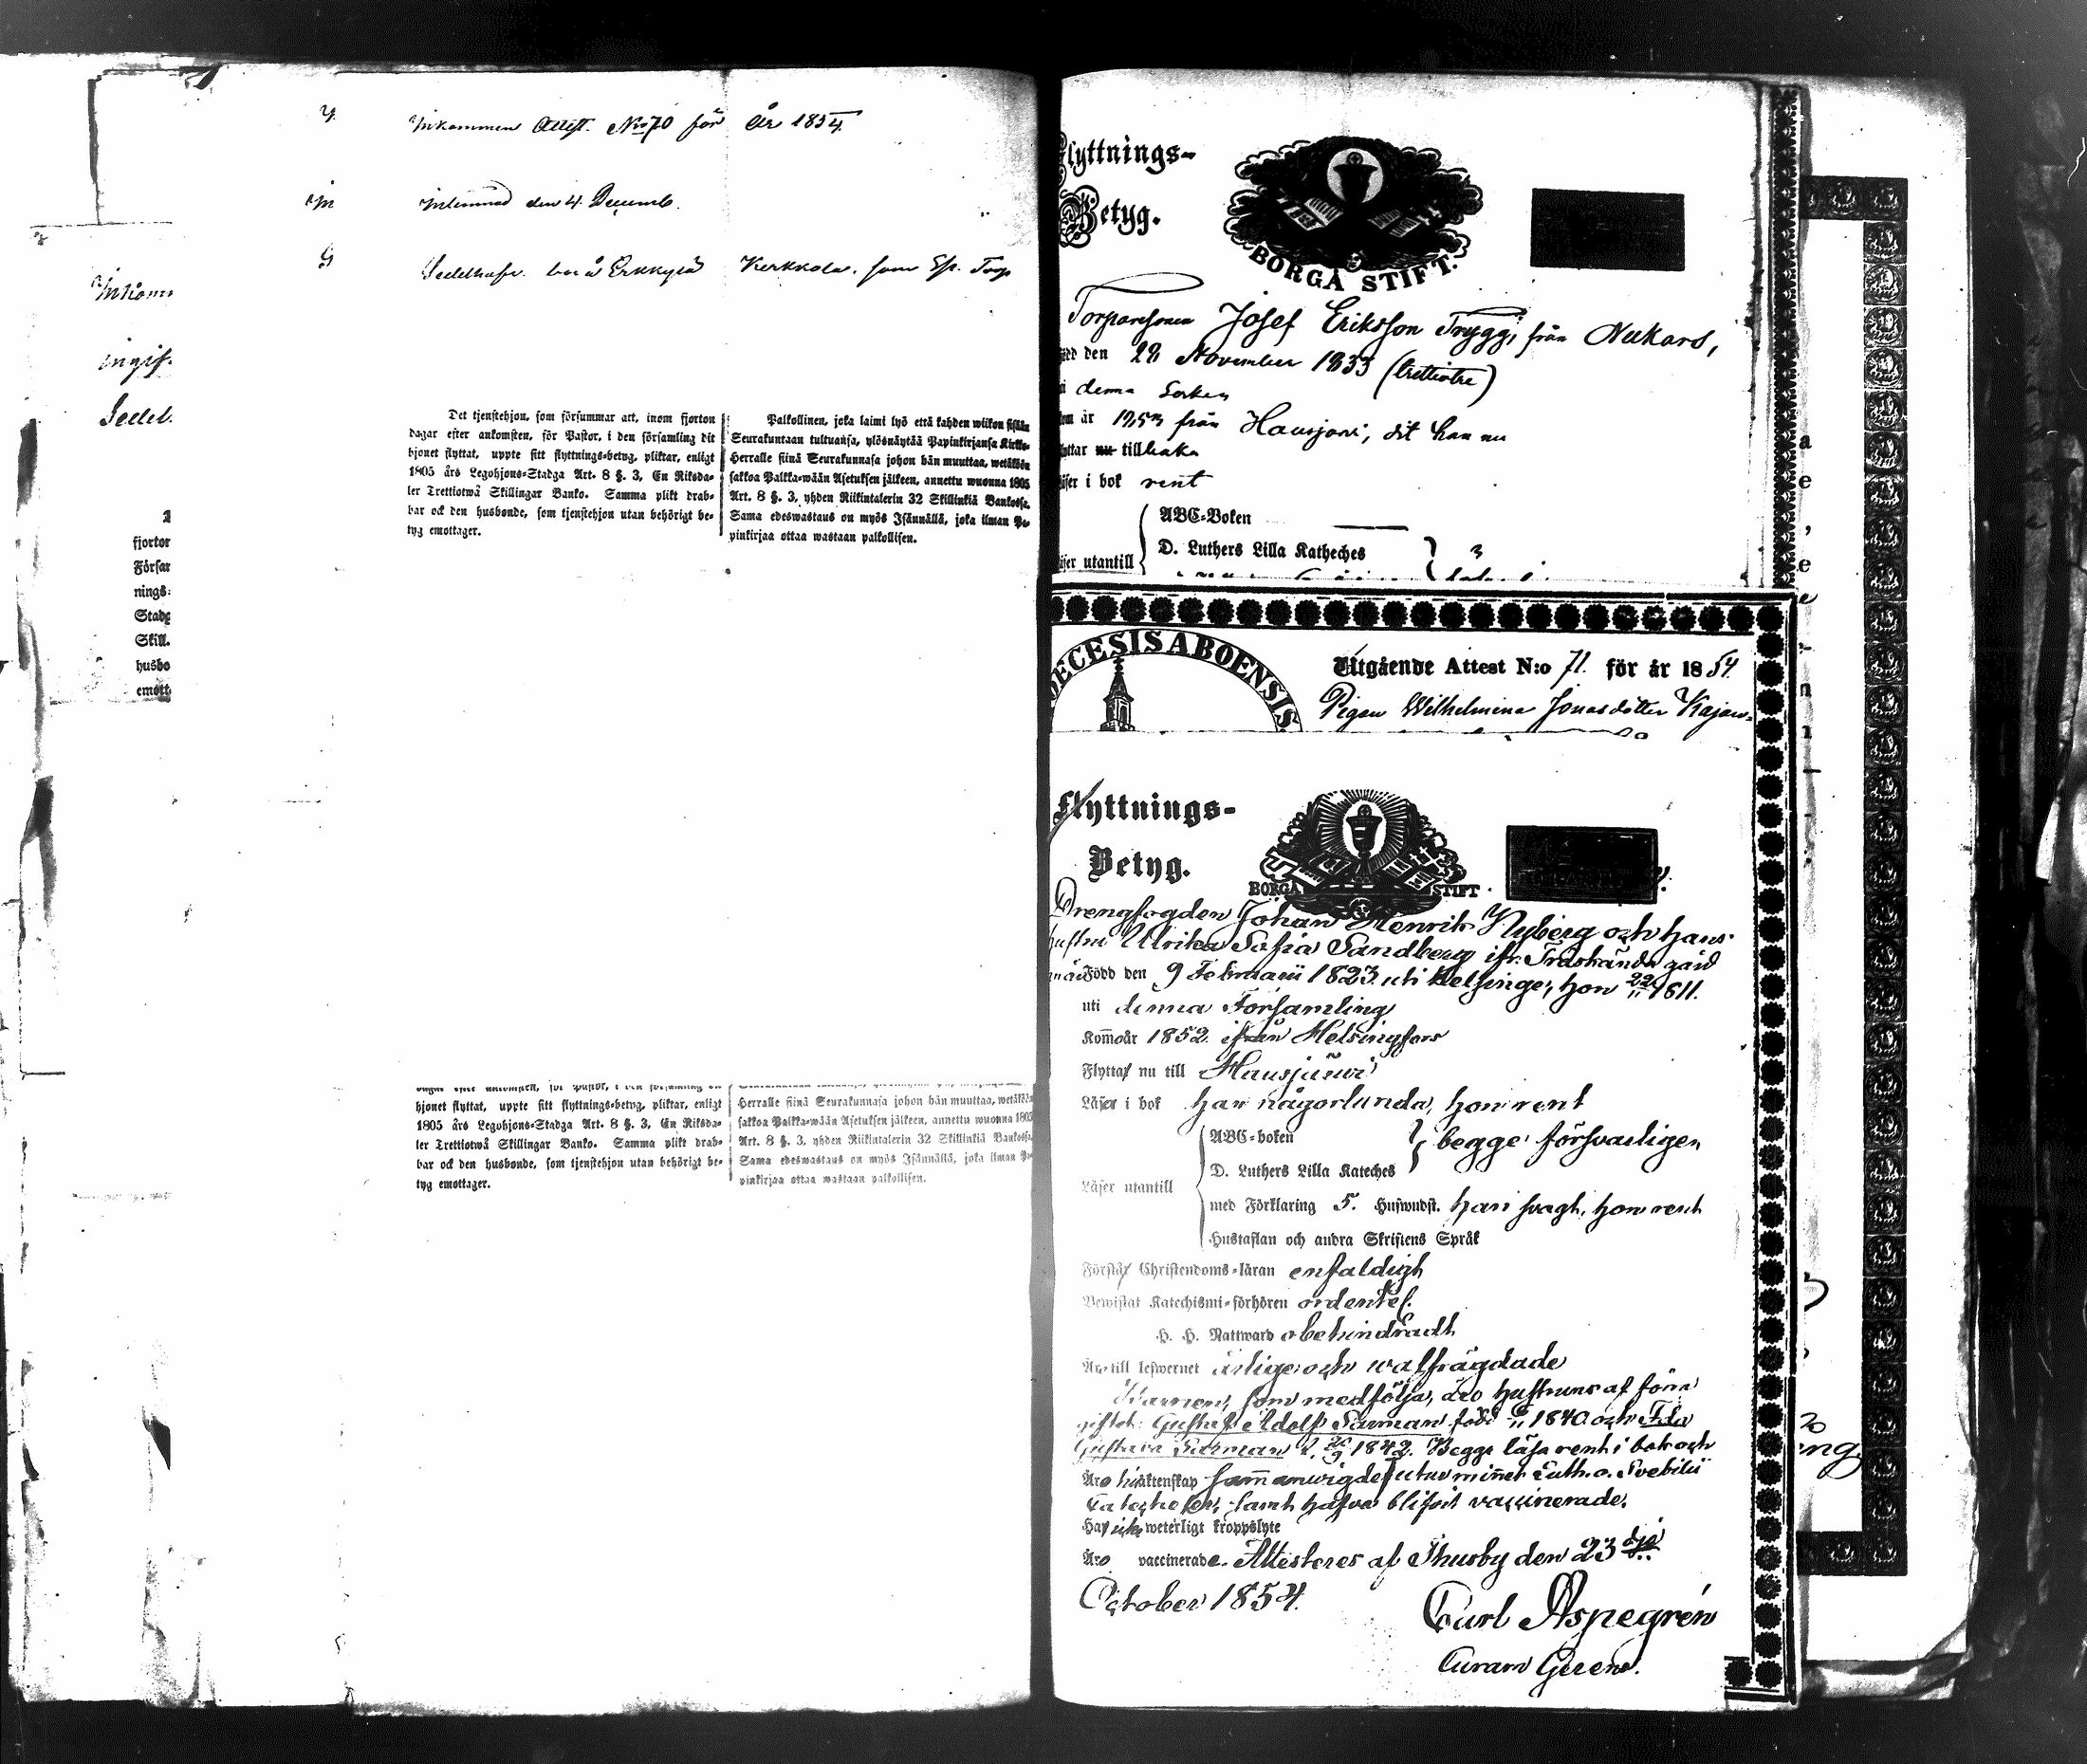 Inkommen Attest. No 70 för År 1854
Inlemnad den 4 Decemb.
Sedelhafv. bor å Erkkylä Kerkkola, som Torp
Inkom
ingif.
Sedel.
fjorton
Försam
nings-
Stadg
Skill.
husbo
emott
Det tjenstehjon, som försummar att, inom fjorton
dagar efter ankomsten, för Pastor, i den församling dit
hjonet flyttat, uppte sitt flyttnings-betyg, pliktar, enligt
1805 års Legohjons-Stadga Art. 8 §. 3, En Riksda-
ler Trettiotwå Skillingar Banko. Samma plikt drab-
bar ock den husbonde, som tjenstehjon utan behörigt be-
tyg emottager.
Palkollinen, joka laimi lyö että kahden wiikon sisään
Seurakuntaan tultuansa, ylösnäytää Papinkirjansa Kirkko-
Herralle siinä Seurakunnasa johon hän muuttaa, wetäköön
sakkoa Palkka-wään Asetuksen jälkeen, annettu wuonna 1805
Art. 8 §. 3, yhden Riikintalerin 32 Skillinkiä Bankossa.
Sama edeswastaus on myös Isännällä, joka ilman Pa-
pinkirjaa ottaa wastaan palkollisen.
hjonet flyttat, uppte sitt flyttnings-betyg, pliktar, enligt
1805 års Legohjons-Stadga Art. 8 §. 3, En Riksda-
ler Trettiotwå Skillingar Banko. Samma plikt drab-
bar ock den husbonde, som tjenstehjon utan behörigt be-
tyg emottager.
Herralle siinä Seurakunnasa johon hän muuttaa, wetäköön
sakkoa Palkka-wään Asetuksen jälkeen, annettu wuonna 1805
Art. 8 §. 3, yhden Riikintalerin 32 Skillinkiä Bankossa.
Sama edeswastaus on myös Isännällä, joka ilman Pa-
pinkirjaa ottaa wastaan palkollisen.
Flyttnings-
Betyg.
BORGÅ STIFT.
Torparesonen Josef Eriksson Trygg, från Nukars,
född den 28 November 1833 (trettiotre)
i denna Socken
kom år 1853 från Hausjärvi, dit han nu
flyttar nu tillbaka
Läser i bok rent
ABC-Boken
D. Luthers Lilla Katheches
Läser utantill
3
DIECESIS ABOENSIS
Utgående Attest N:o 71. för år 1854.
Pigan Wilhelmina Jonasdotter Kajan-
Flyttnings-
Betyg.
BORGÅ STIFT.
Drengfogden Johan Henrik Nyberg och hans
hustru Ulrika Sofia Sandberg ifr. Träskända gård
Född den 9 Februarii 1823 uti Helsinge, hon 22/11 1811.
uti denna Församling
Kom år 1852 ifrån Helsingfors
Flytta nu till Hausjärwi
Läser i bok han någorlunda, hon rent
ABC-boken
D. Luthers Lilla Kateches
begge försvarligen
Läser utantill
med Förklaring 5. Huswudst. han svagt, hon rent
Hustaflan och andra Skriftens Språk
Förstå Christendoms-läran enfaldigt
Bewistat Katechismi-förhören ordentel.
H. H. Nattward obehindradt
Äro till lefwernet ärlige och wälfrägdade
Barnen, som medfölja, äro hustruns af förra
giftet: Gustaf Adolf Sarman född 1840 och Ida
Gustava Sarman f. 1842. Begge läsa rent i bok och
Äro h. äktenskap sammanwigde utur minnet Luth. o. Svebilii
Cateches, samt hafva blifvit vaccinerade.
Ha icke weterligt kroppslyte
Äro vaccinerade. Attesteres af Thusby den 23 dje
October 1854.
Carl Aspegrén
Curam Gerens.